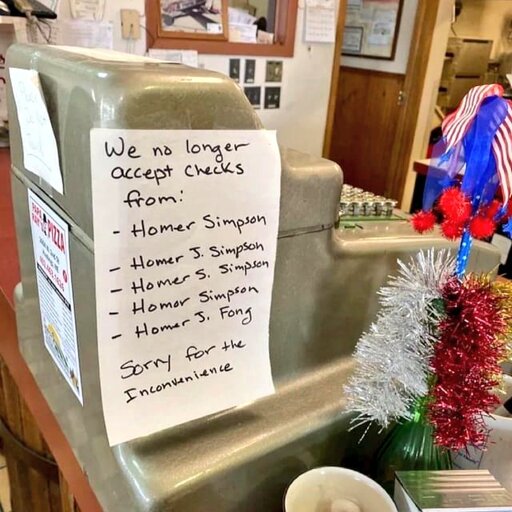 We no longer
accept checks
from:
- Homer Simpson
- Homer J. Simpson
- Homer S. Simpson
- Homor Simpson
- Homer J. Fong
Sorry for the
Inconvenience
PIZZA